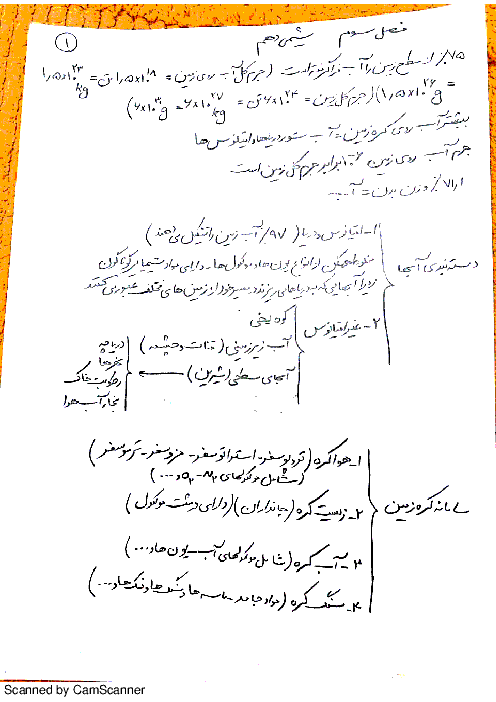 ۱
فصل سوم شیمی دهم
۷۵٪ از سطح زمین را آب فراگرفته است (جرم کل آب روی زمین = ۱٫۵×۱۰^۱۸ تن = ۱٫۵×۱۰^۲۳ kg
= ۱٫۵×۱۰^۲۶ g) (جرم کل زمین = ۶×۱۰^۲۴ تن = ۶×۱۰^۲۷ kg = ۶×۱۰^۳۰ g)
بیشتر آب روی کره زمین = آب شور دریاها و اقیانوس ها
جرم آب روی زمین برابر جرم کل زمین است
وزن بدن = آب
دسته بندی آبها
۱- اقیانوس و دریا (۹۷٪ آب زمین را تشکیل می دهند)
مخلوط همگن از انواع یون ها و مولکول ها - دارای مواد شیمیایی گوناگون
زیرا آبهایی که به دریاها می ریزند در مسیر خود از زمین های مختلف عبور می کنند
۲- غیر اقیانوس
کوه یخی
آب زیرزمینی (قنات و چشمه)
آبهای سطحی (شیرین)
دریاچه
نهرها
رطوبت خاک
بخار آب هوا
سامانه کره زمین
۱- هواکره (تروپوسفر - استراتوسفر - مزوسفر - ترموسفر)
(شامل مولکولهای N₂ - O₂ و ...)
۲- زیست کره (جانداران) (دارای درشت مولکول)
۳- آب کره (شامل مولکولهای آب - یون ها و ...)
۴- سنگ کره (مواد جامد - ماسه ها و سنگ ها و نمک ها و ...)
Scanned by CamScanner